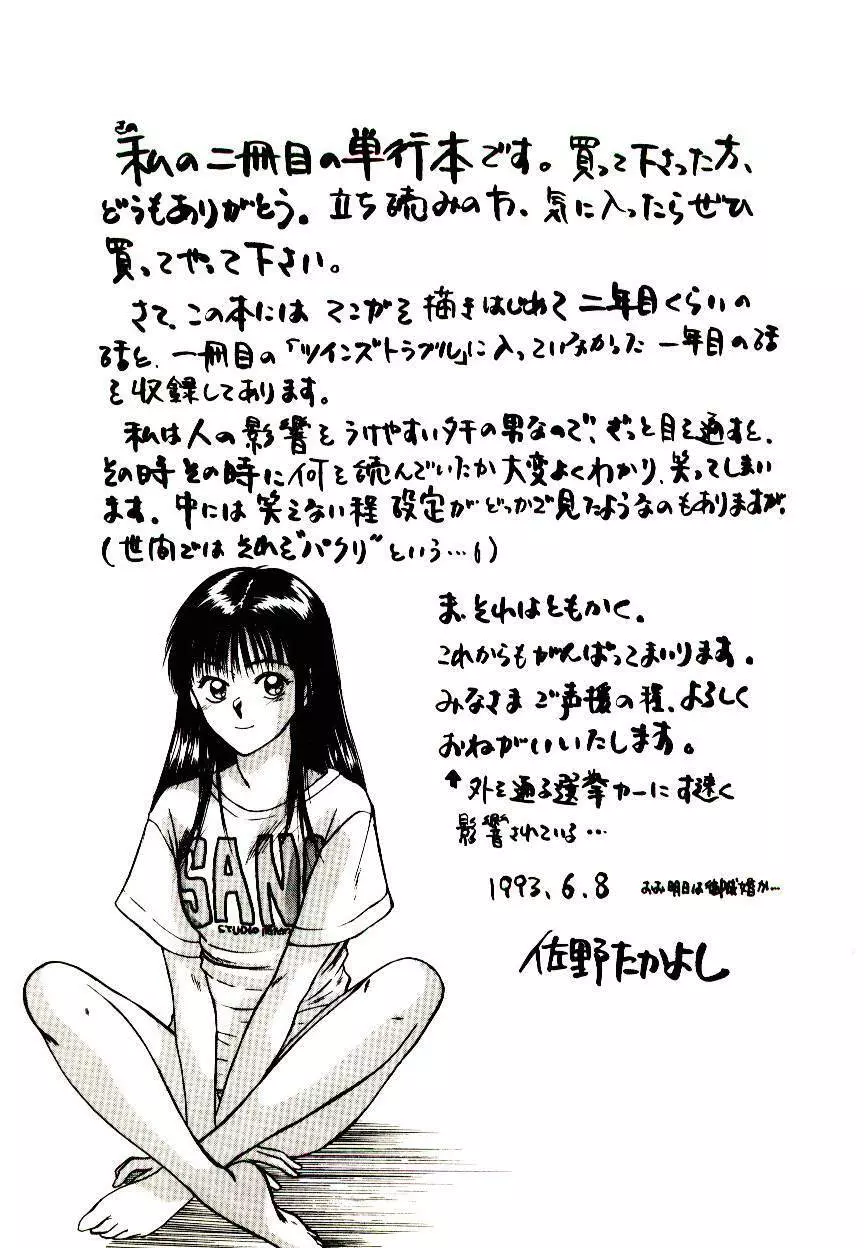 さの
私の二冊目の単行本です。買って下さった方、
どうもありがとう。立ち読みの方、気に入ったらぜひ
買ってやって下さい。
さて、この本には マンガを描きはじめて 二年目くらいの
話と、一冊目の「ツインズトラブル」に入っていなかった 一年目の話
を収録してあります。
私は人の影響をうけやすいタチの男なので、ざっと目を通すと、
その時その時に何を読んでいたか大変よくわかり、笑ってしまい
ます。中には笑えない程 設定がどっかで見たようなのもありますが、
(世間ではそれを"パクリ"という…!)
ま、それはともかく。
これからもがんばってまいります。
みなさまご声援の程、よろしく
おねがいいたします。
↑外を通る選挙カーにす速く
影響されている…
1993.6.8
明日は御成婚か…
佐野たかよし
SAN
STUDIO